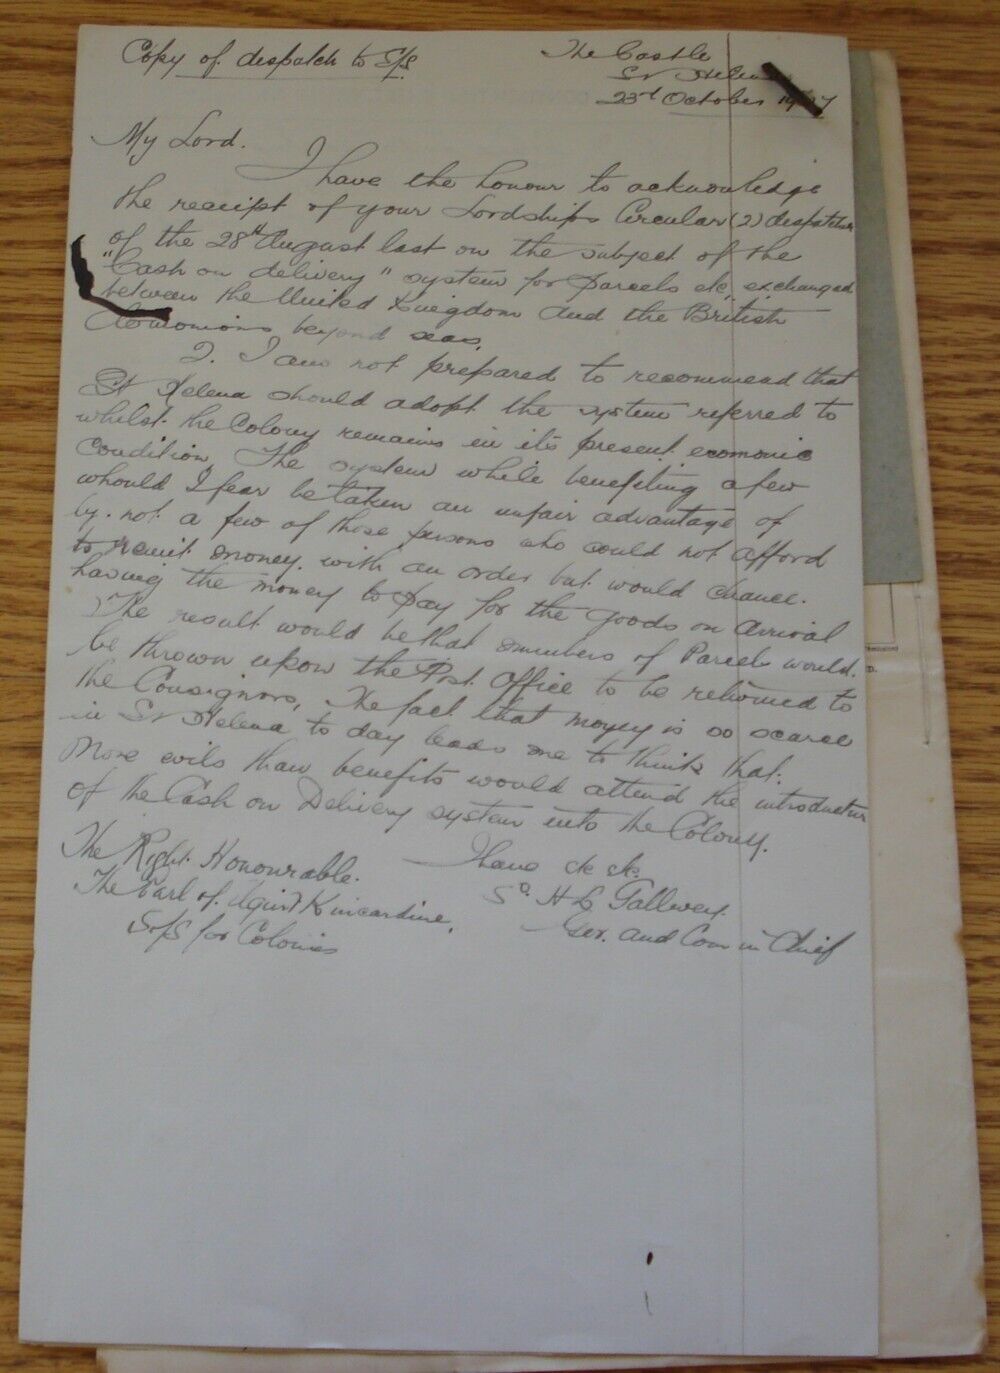 Copy of despatch to S/S
The Castle
St Helena
23rd October 1907
My Lord.
I have the honour to acknowledge
the receipt of your Lordships Circular (2) despatch
of the 28th August last on the subject of the
"Cash on delivery" system for Parcels etc, exchanged
between the United Kingdom and the British
Dominions beyond seas.
2. I am not prepared to recommend that
St Helena should adopt the system referred to
whilst the Colony remains in its present economic
Condition. The system while benefiting a few
whould I fear be taken an unfair advantage of
by. not a few of those persons who could not afford
to remit money. with an order but would chance.
having the money to pay for the goods on arrival
The result would be that numbers of Parcels would.
be thrown upon the Post Office to be returned to
the Consignors, The fact that money is so scarce
in St Helena to day leads me to think that.
more evils than benefits would attend the introduction
of the Cash on Delivery system into the Colony.
I have etc etc.
Sd. H L Gallwey.
Gov. and Com in Chief
The Right Honourable.
The Earl of Elgin & Kincardine,
S of S for Colonies